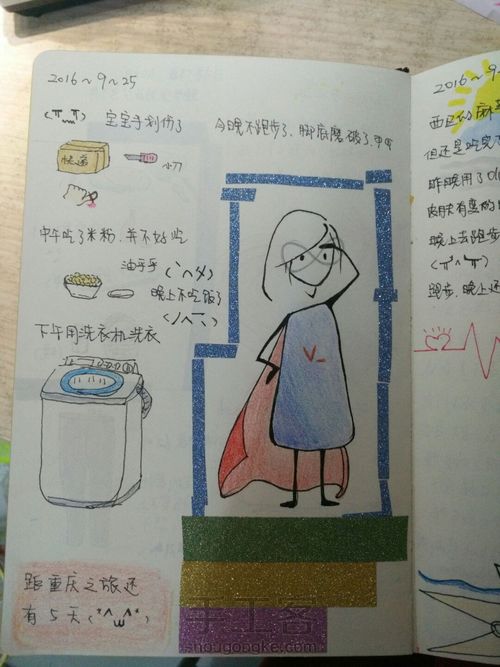 2016~9~25
(╥﹏╥) 宝宝手划伤了
今晚不跑步了、脚底磨破了.
快递
小刀
中午吃了米粉.并不好吃
油乎乎
晚上不吃饭了
下午用洗衣机洗衣
V_
距重庆之旅还
有5天(*^ω^*)
2016~9~
但还是吃完
昨晚用了
晚上去跑步
跑步.晚上还
手工客
shougongke.com